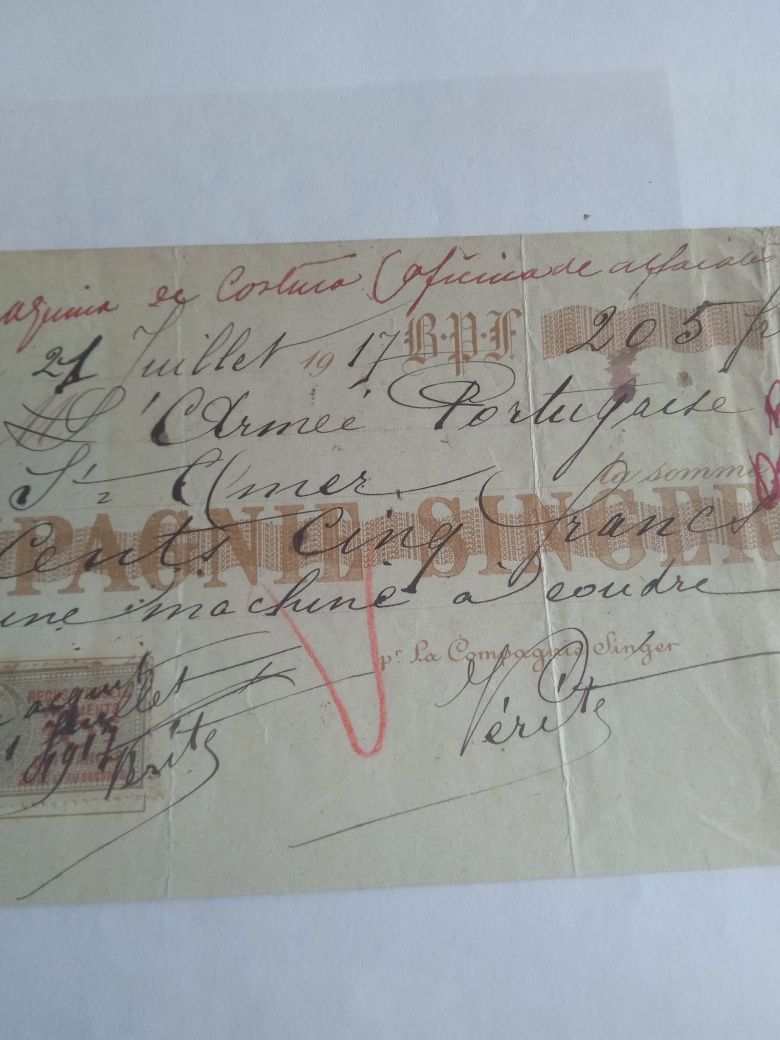 aquina de Costura (oficina de alfaiate
21 Juillet 1917 B.P.F 205 fr
L'Armée Portugaise
St Omer la somme
Cents Cinq francs
PAGNIE SINGER
une machine à coudre
pr La Compagnie Singer
acquit
Juillet
1917
Vérité
Vérité